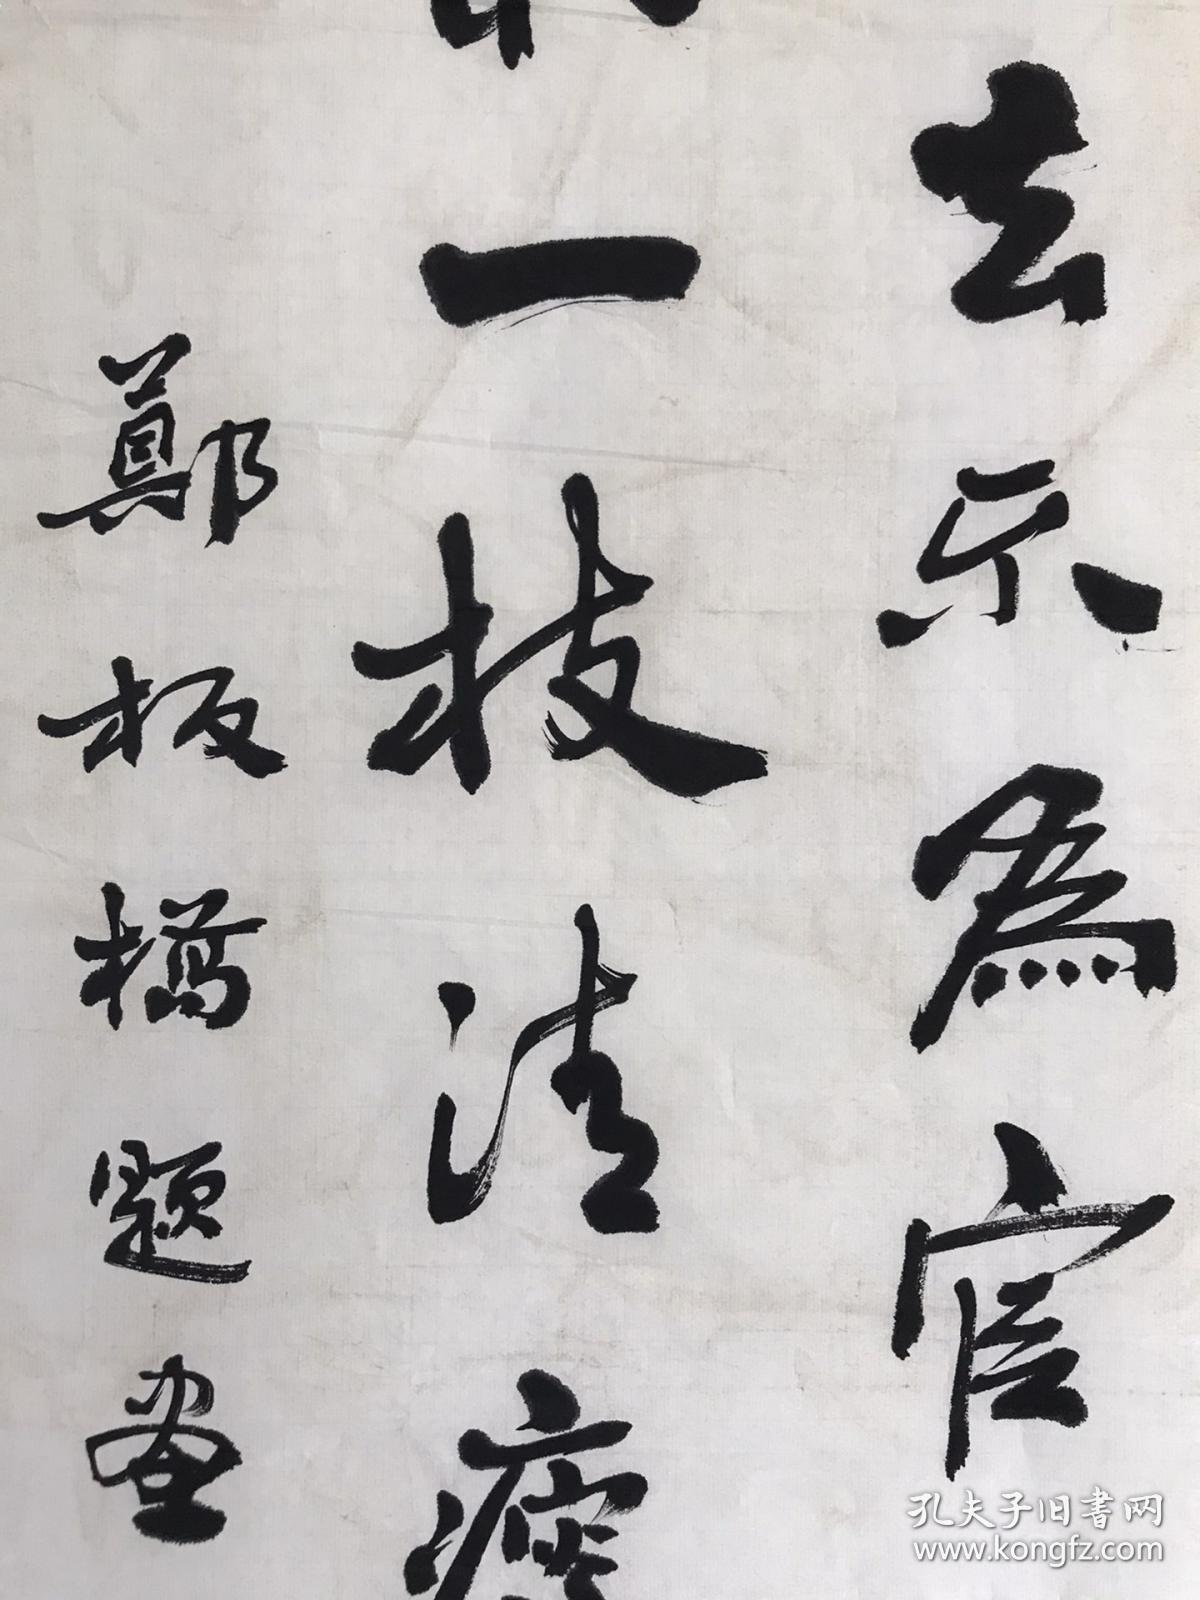 去不为官
一枝清瘦
鄭板橋题畫
孔夫子旧書网
www.kongfz.com